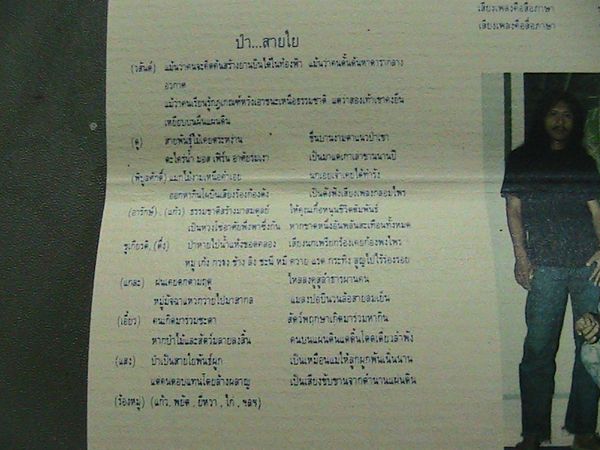 เสียงเพลงคือสื่อภาษา
เสียงเพลงคือสื่อภาษา
ป่า...สายใย
(วสันต์) แม้นว่าคนจะคิดค้นสร้างยานบินได้ในท้องฟ้า แม้นว่าคนดั้นด้นหาดารากลาง
อวกาศ
แม้ว่าคนเรียนรู้กฎเกณฑ์หวังเอาชนะเหนือธรรมชาติ แต่ว่าสองเท้าเขาคงยืน
เหยียบบนผืนแผ่นดิน
(ตู่) สายพันธุ์ไม้เคยตระหง่าน ขึ้นบานงามตาแนวป่าเขา
ตะไคร่น้ำ มอส เฟิร์น อาศัยร่มเงา เป็นมาแต่เก่าเสาขานนานปี
(พิบูลศักดิ์) แมกไม้งามเหนือคำเอย นกเอยเจ้าเคยได้ทำรัง
ออกหากินโผบินเสียงร้องก้องดัง เป็นดังฟังเสียงเพลงกล่อมไพร
(อารักษ์) , (แก้ว) ธรรมชาติสร้างมาสมดุลย์ ให้คุณเกื้อหนุนชีวิตสัมพันธ์
เป็นห่วงโซ่อาศัยพึ่งพาซึ่งกัน หากขาดหนึ่งอันพลันสะเทือนทั้งหมด
ชูเกียรติ, (ตึ๋ง) ป่าหายไปน้ำแห้งขอดคลอง เสียงนกเพรียกร้องเคยก้องพงไพร
หมู เก้ง กวาง ช้าง ลิง ชะนี หมี ควาย แรด กระทิง สูญไปไร้ร่องรอย
(แกละ) ฝนเคยตกตามฤดู ไหลลงคูสู่ลำธารผ่านคน
หมู่มัจฉาแหวกว่ายไปมาสากล แมลงปอบินวนล้อสายลมเย็น
(เอี้ยว) คนเกิดมาร่วมชะตา สัตว์พฤกษาเกิดมาร่วมหากิน
หากป่าไม้และสัตว์มลายลงสิ้น คนบนแผ่นดินแดดิ้นโดดเดี่ยวลำพัง
(แสง) ป่าเป็นสายใยพันธ์ผูก เป็นเหมือนแม่ให้ลูกผูกพันเนิ่นนาน
แต่คนตอบแทนโดยล้างผลาญ เป็นเสียงขับขานจากตำนานแผ่นดิน
(ร้องหมู่) (แก้ว, พยัต , ยีหวา , ไก่ , ฯลฯ)